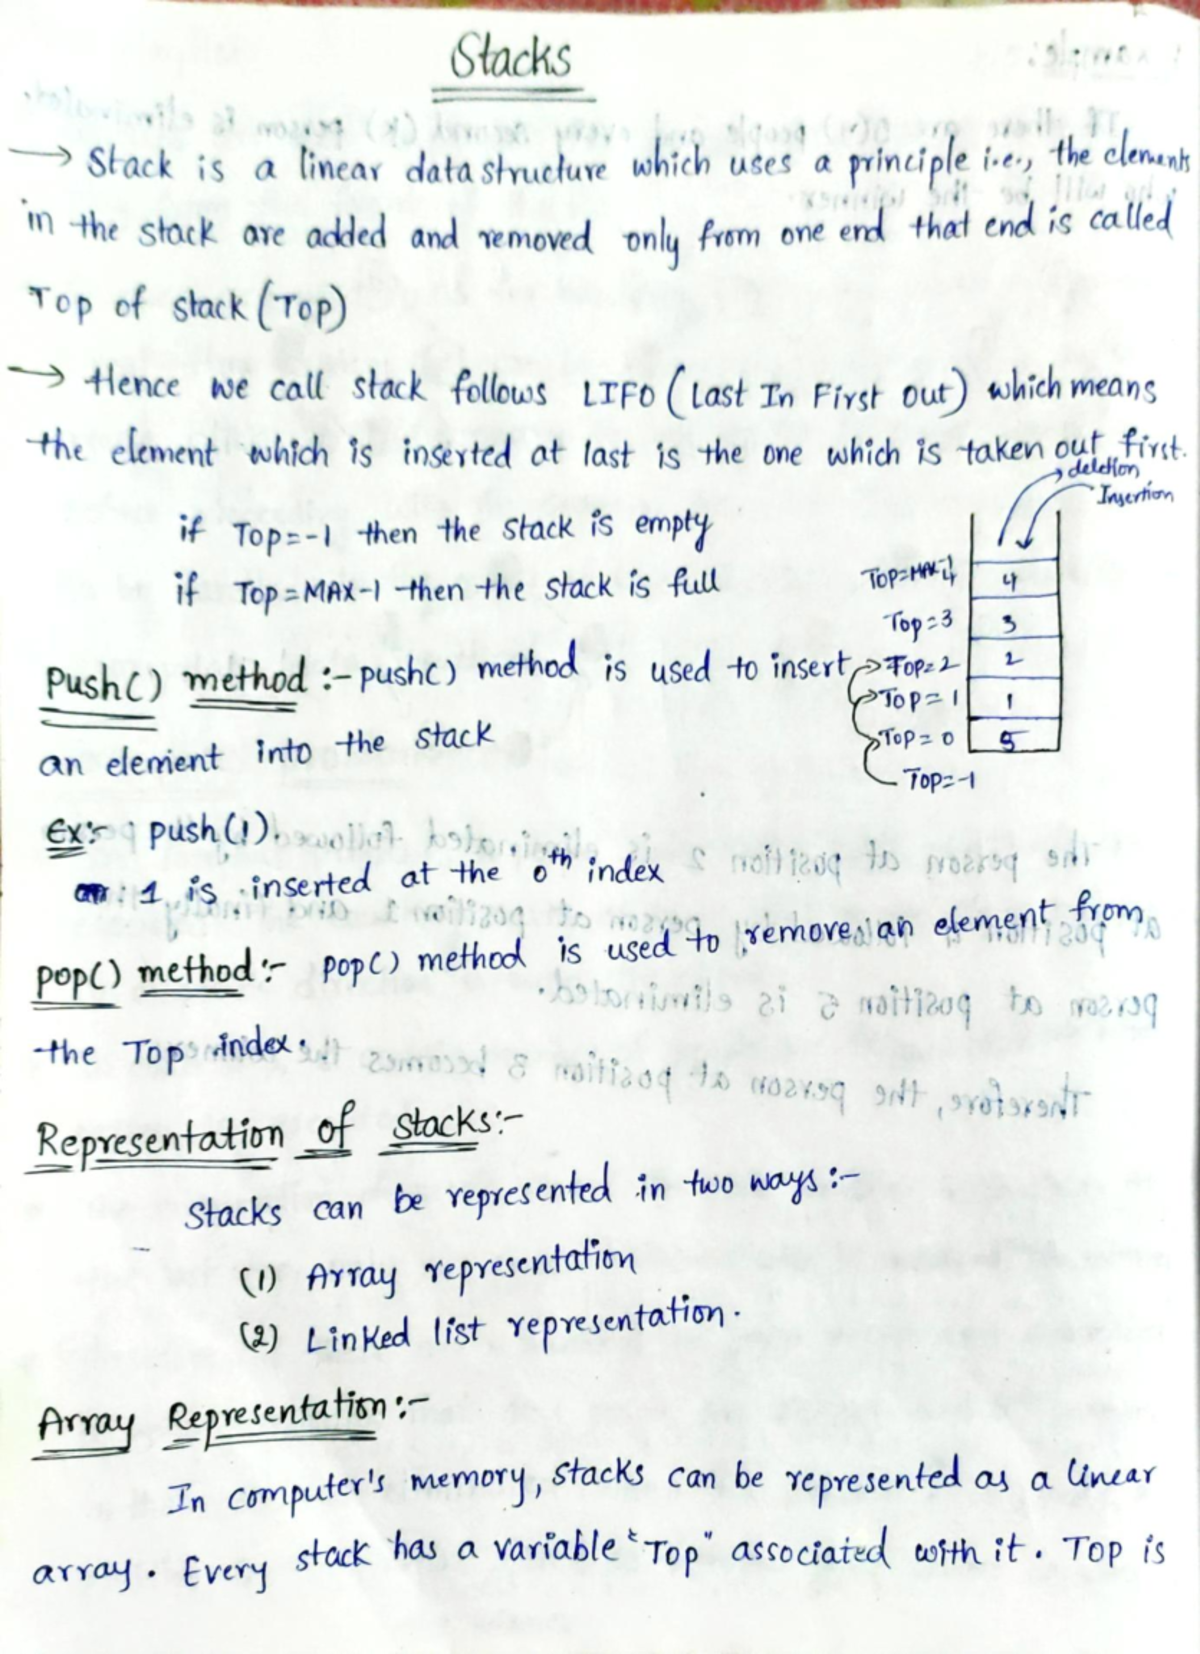 Stacks
→ Stack is a linear data structure which uses a principle i.e., the elements
in the stack are added and removed only from one end that end is called
Top of stack (Top)
→ Hence we call stack follows LIFO (Last In First Out) which means
the element which is inserted at last is the one which is taken out first.
deletion
Insertion
if Top=-1 then the stack is empty
if Top=MAX-1 then the stack is full
4
Top=3 3
Top=2 2
Top=1 1
Top=0 5
Top=-1
Push() method :- push() method is used to insert
an element into the stack
Ex:- push(1).
1 is inserted at the 0th index
pop() method :- pop() method is used to remove an element from
the Top index.
Representation of stacks:-
Stacks can be represented in two ways :-
(1) Array representation
(2) Linked list representation.
Array Representation :-
In computer's memory, stacks can be represented as a linear
array. Every stack has a variable "Top" associated with it. Top is